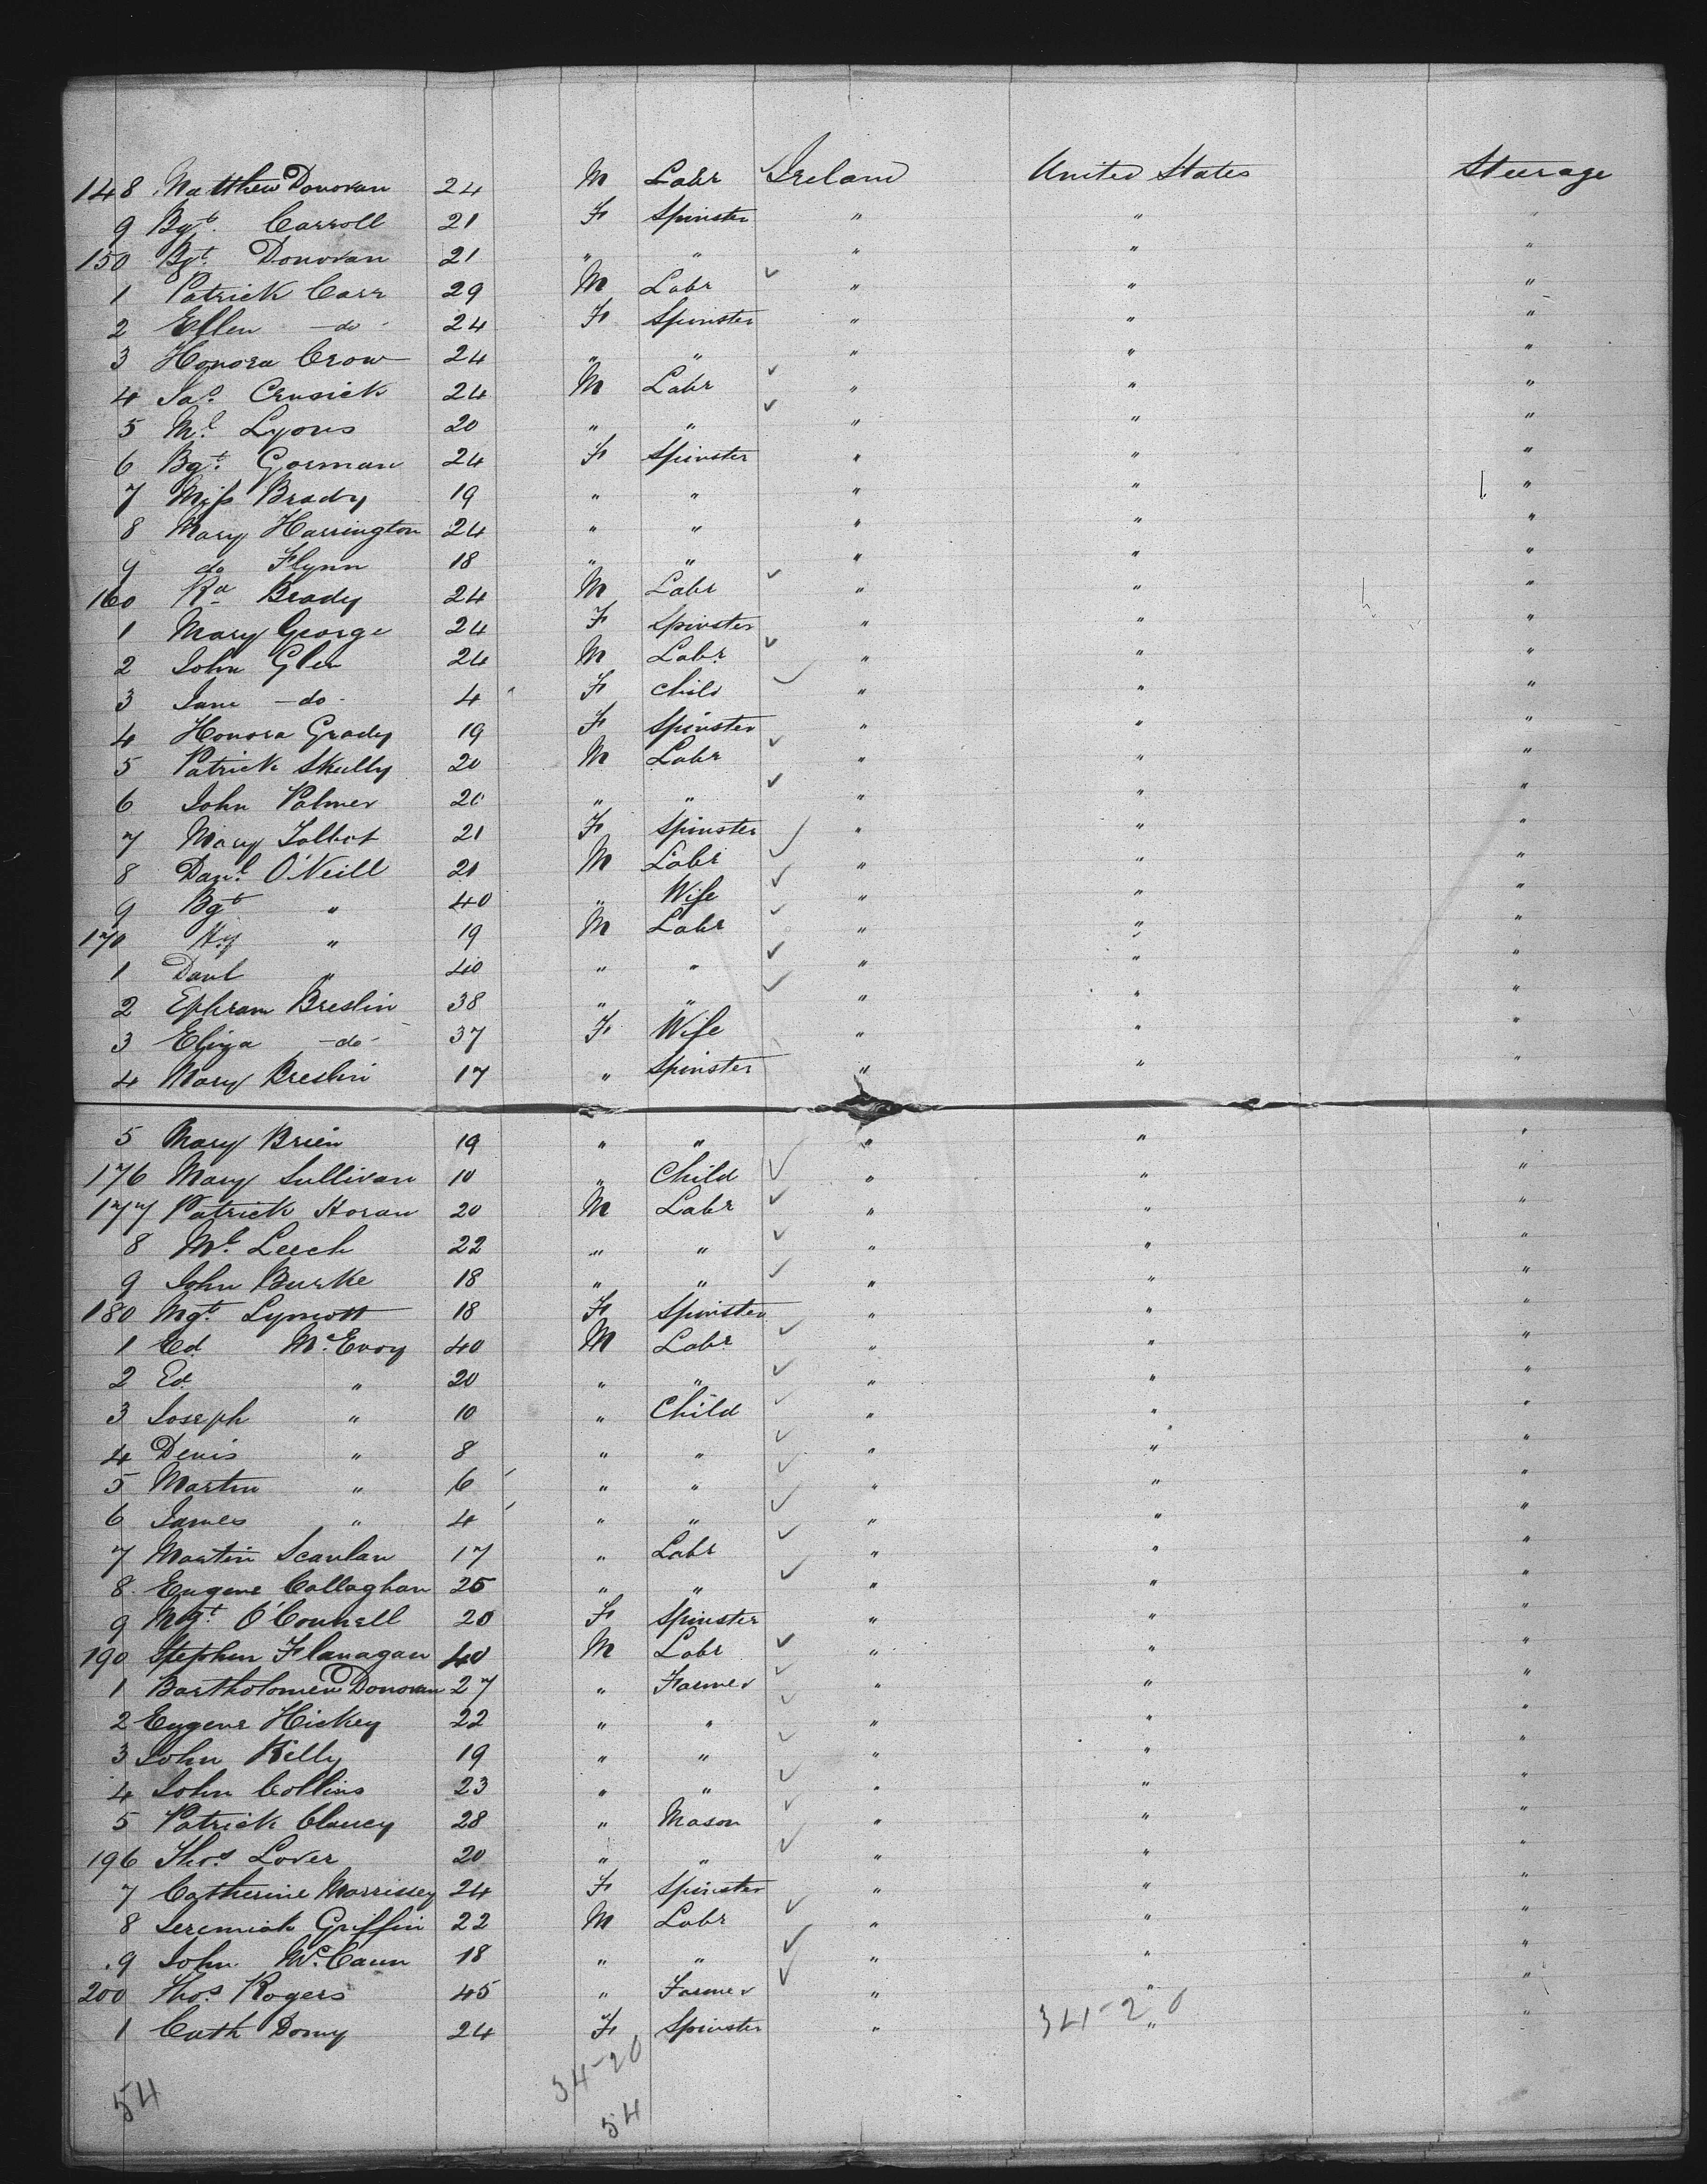 148 Matthew Donovan 24 M Labr Ireland United States Steerage
9 Bgt. Carroll 21 F Spinster " " "
150 Bgt. Donovan 21 " " " " "
1 Patrick Carr 29 M Labr " " "
2 Ellen - do - 24 F Spinster " " "
3 Honora Crow 24 " " " " "
4 Jas. Cusick 24 M Labr " " "
5 Ml. Lyons 20 " " " " "
6 Bgt. Gorman 24 F Spinster " " "
7 Miss Brady 19 " " " " "
8 Mary Harrington 24 " " " " "
9 do Flynn 18 " " " " "
160 Brady 24 M Labr " " "
1 Mary George 24 F Spinster " " "
2 John Glen 24 M Labr " " "
3 Jane - do - 4 F Child " " "
4 Honora Grady 19 F Spinster " " "
5 Patrick Skully 20 M Labr " " "
6 John Palmer 20 " " " " "
7 Mary Talbot 21 F Spinster " " "
8 Danl. O'Neill 21 M Labr " " "
9 Bgt " 40 " Wife " " "
170 Hy " 19 M Labr " " "
1 Danl " 40 " " " " "
2 Ephram Breslin 38 " " " " "
3 Eliza - do - 37 F Wife " " "
4 Mary Breslin 17 " Spinster " " "
5 Mary Brien 19 " " " " "
176 Mary Sullivan 10 " Child " " "
177 Patrick Horan 20 M Labr " " "
8 Ml. Leech 22 " " " " "
9 John Burke 18 " " " " "
180 Mgt. 18 F Spinster " " "
1 Ed McEvoy 40 M Labr " " "
2 Ed. " 20 " " " " "
3 Joseph " 10 " Child " " "
4 Denis " 8 " " " " "
5 Martin " 6 " " " " "
6 James " 4 " " " " "
7 Martin Scanlan 17 " Labr " " "
8 Eugene Callaghan 25 " " " " "
9 Mgt. O'Connell 20 F Spinster " " "
190 Stephen Flanagan 40 M Labr " " "
1 Bartholomew Donovan 27 " Farmer " " "
2 Eugene Hickey 22 " " " " "
3 John Kelly 19 " " " " "
4 John Collins 23 " " " " "
5 Patrick Clancy 28 " Mason " " "
196 Thos. Lover 20 " " " " "
7 Catherine Morrissey 24 F Spinster " " "
8 Jeremiah Griffin 22 M Labr " " "
9 John McCann 18 " " " " "
200 Thos. Rogers 45 " Farmer " " "
1 Cath Domy 24 F Spinster " " "
34-20
34-20
54
54